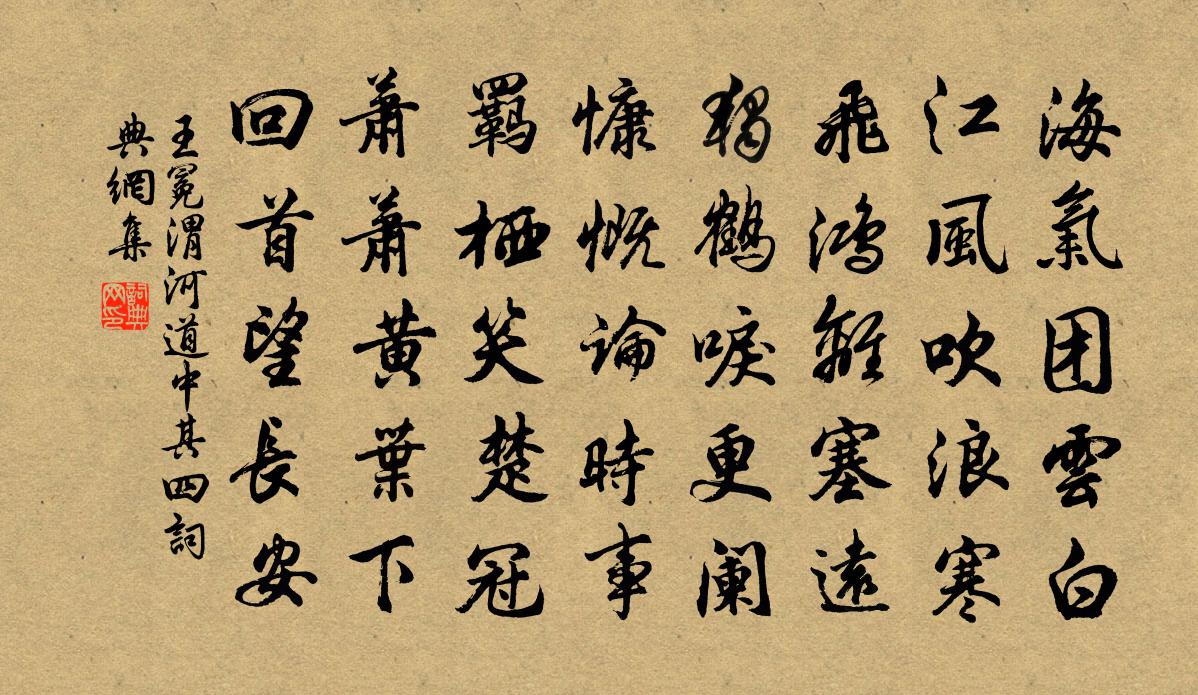 海氣团雲白
江風吹浪寒
飛鴻離塞遠
獨鶴唳更阑
慷慨論時事
羁栖笑楚冠
蕭蕭黄葉下
回首望長安
王冕渭河道中其四詞
典網集
詞典
网印